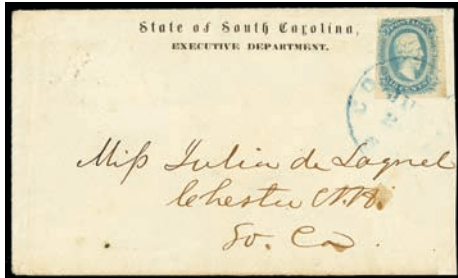 State of South Carolina,
EXECUTIVE DEPARTMENT.
Miss Julia de Lagnel
Chester C.H.
So. Ca.